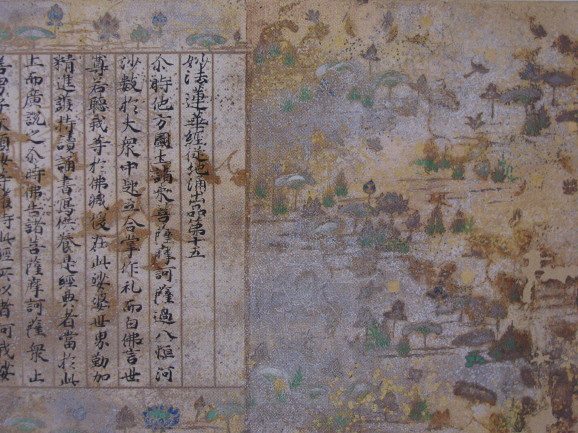 妙法蓮華經從地涌出品第十五
尒時他方國土諸來菩薩摩訶薩過八恒河
沙數於大衆中起立合掌作礼而白佛言世
尊若聽我等於佛滅後在此娑婆世界勤加
精進護持讀誦書寫供養是經典者當於此
土而廣說之尒時佛告諸菩薩摩訶薩衆止
善男子不須汝等護持此經所以者何我娑